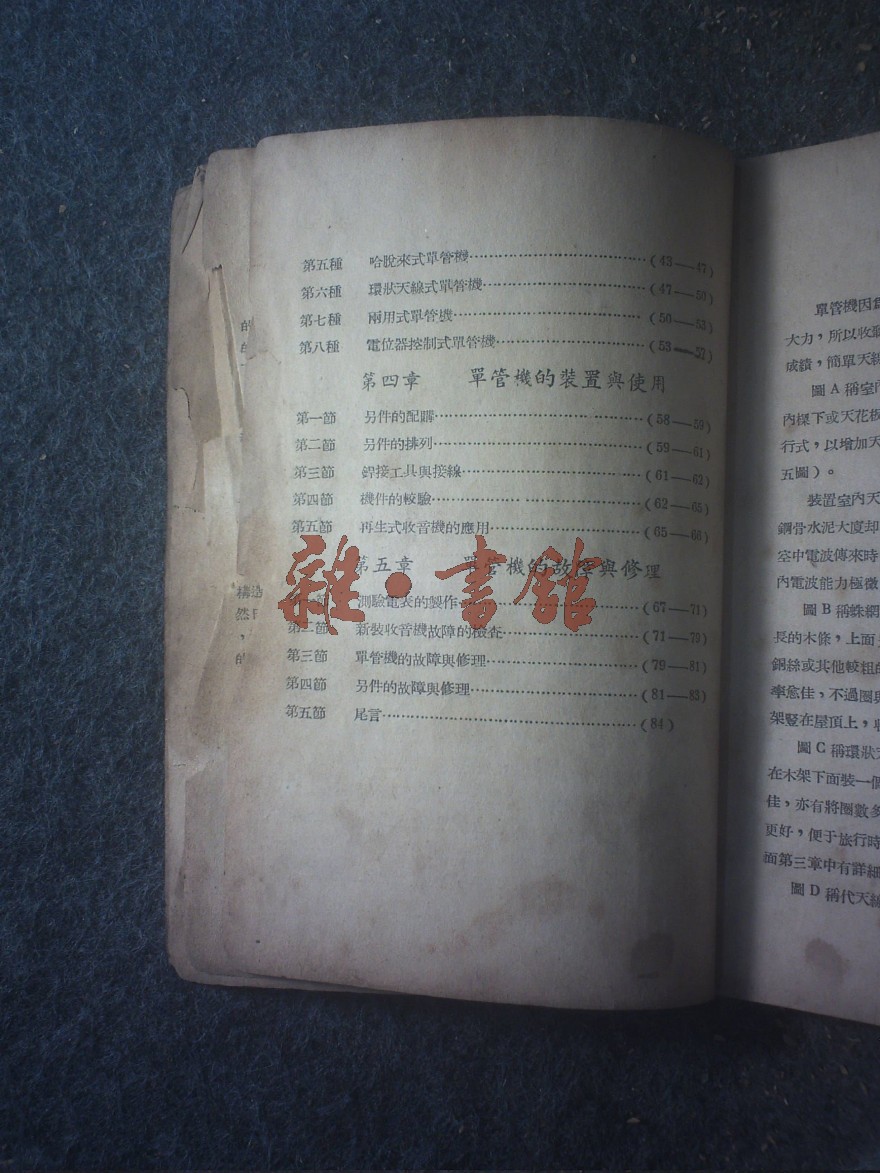 第五種 哈脫來式單管機⋯⋯⋯⋯⋯⋯⋯⋯⋯(43—47)
第六種 環狀天線式單管機⋯⋯⋯⋯⋯⋯⋯⋯(47—50)
第七種 兩用式單管機⋯⋯⋯⋯⋯⋯⋯⋯⋯⋯(50—53)
第八種 電位器控制式單管機⋯⋯⋯⋯⋯⋯⋯(53—57)
第四章 單管機的裝置與使用
第一節 另件的配購⋯⋯⋯⋯⋯⋯⋯⋯⋯⋯⋯(58—59)
第二節 另件的排列⋯⋯⋯⋯⋯⋯⋯⋯⋯⋯⋯(59—61)
第三節 銲接工具與接線⋯⋯⋯⋯⋯⋯⋯⋯⋯(61—62)
第四節 機件的較驗⋯⋯⋯⋯⋯⋯⋯⋯⋯⋯⋯(62—65)
第五節 再生式收音機的應用⋯⋯⋯⋯⋯⋯⋯(65—66)
第五章 單管機的故障與修理
第一節 測驗電表的製作⋯⋯⋯⋯⋯⋯⋯⋯⋯(67—71)
第二節 新裝收音機故障的檢查⋯⋯⋯⋯⋯⋯(71—79)
第三節 單管機的故障與修理⋯⋯⋯⋯⋯⋯⋯(79—81)
第四節 另件的故障與修理⋯⋯⋯⋯⋯⋯⋯⋯(81—83)
第五節 尾言⋯⋯⋯⋯⋯⋯⋯⋯⋯⋯⋯⋯⋯⋯(84)
雜·書館
單管機因爲
大力,所以收
成績,簡單天線
圖A稱室內
內樑下或天花板
行式,以增加天
五圖)。
裝置室內天
鋼骨水泥大廈却
空中電波傳來時
內電波能力極微
圖B稱蛛網
長的木條,上面
銅絲或其他較粗的
率愈佳,不過圈與
架豎在屋頂上,
圖C稱環狀天
在木架下面裝一個
佳,亦有將圈數多
更好,便于旅行時
面第三章中有詳細
圖D稱代天線